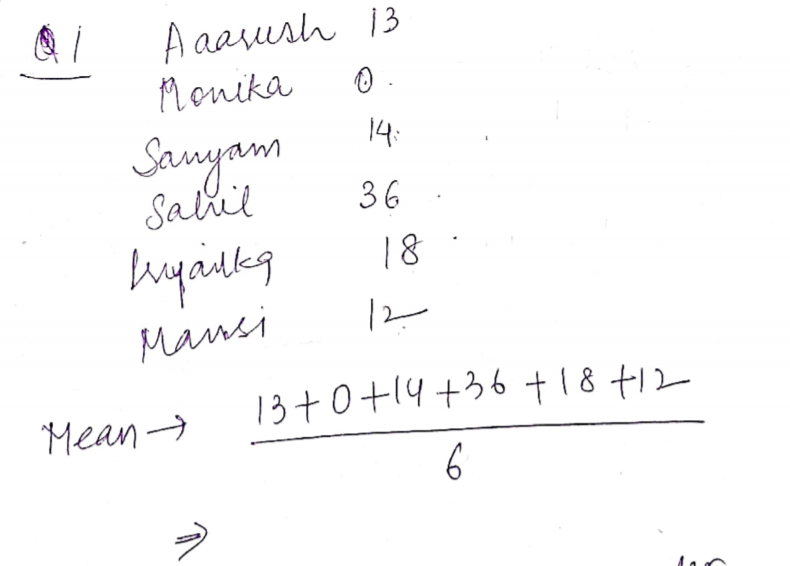 Q1 Aaarush 13
Monika 0.
Sanyam 14.
Sahil 36
18
Mansi 12
Mean → 13+0+14+36+18+12
6
⇒